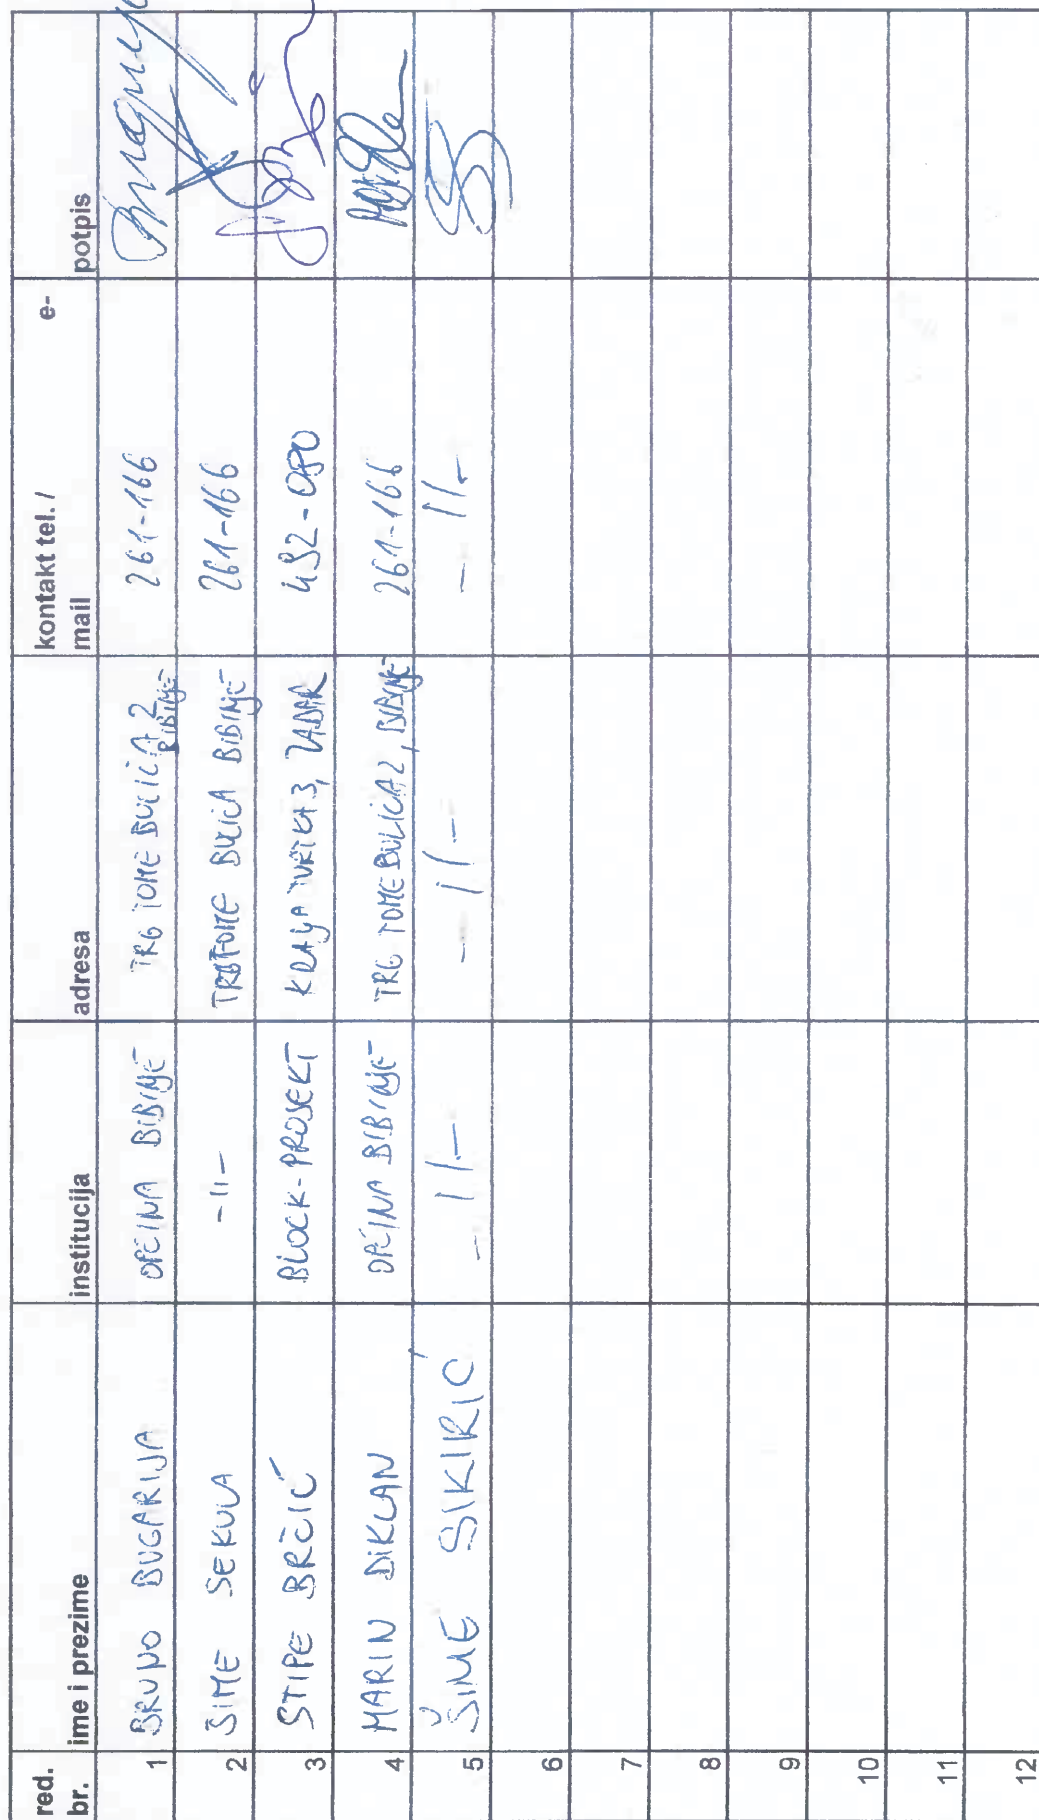 red. br. ime i prezime institucija adresa kontakt tel. / e-mail potpis
1 BRUNO BUGARIJA OPĆINA BIBINJE TRG TOME BULIĆA 2 BIBINJE 261-166
2 ŠIME SEKULA -11- TRG TOME BULIĆA BIBINJE 261-166
3 STIPE BRČIĆ BLOCK-PROJEKT KRALJA TVRTKA 3, ZADAR 492-080
4 MARIN DIKLAN OPĆINA BIBINJE TRG TOME BULIĆA 2, BIBINJE 261-166
5 ŠIME SIKIRIĆ -11- -11- -11-
6
7
8
9
10
11
12